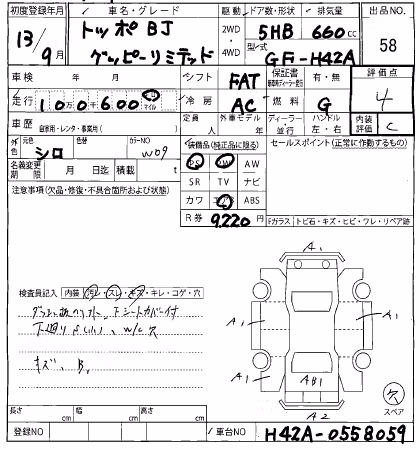 初度登録年月 車名・グレード 駆動 ドア数・形状 排気量 出品NO
13/9月 トッポBJ 2WD・4WD 5HB 660cc 58
グッピーリミテッド 型式 GF-H42A
車検 年 月 シフト FAT 保証書 有・無 評価点
走行 100600 冷房 AC 燃料 G 4
車歴 自家用・レンタ・事業用( ) 定員 人 外車モデル 年 ディーラー・並行 ハンドル 左・右 内装評価 C
外色 元色 シロ 色替 カラーNO W09 装備品(純正品に限る) セールスポイント(正常に作動するもの)
名義変更期限 月 日迄 積載 t
PS AW
SR TV ナビ
カワ ABS
R券 9220
注意事項(欠品・修復・不具合箇所および状態)
Fガラス トビ石・キズ・ヒビ・ワレ・リペア跡
検査員記入 内装 ヨゴレ・スレ・キズ・キレ・コゲ・穴
シートカバー付
下廻り W/C 穴
キズ、B1
A1
A1
A1
A1
A1
AB1
A2
欠
スペア
長さ cm 幅 cm 高さ cm
登録NO 車台NO H42A-0558059